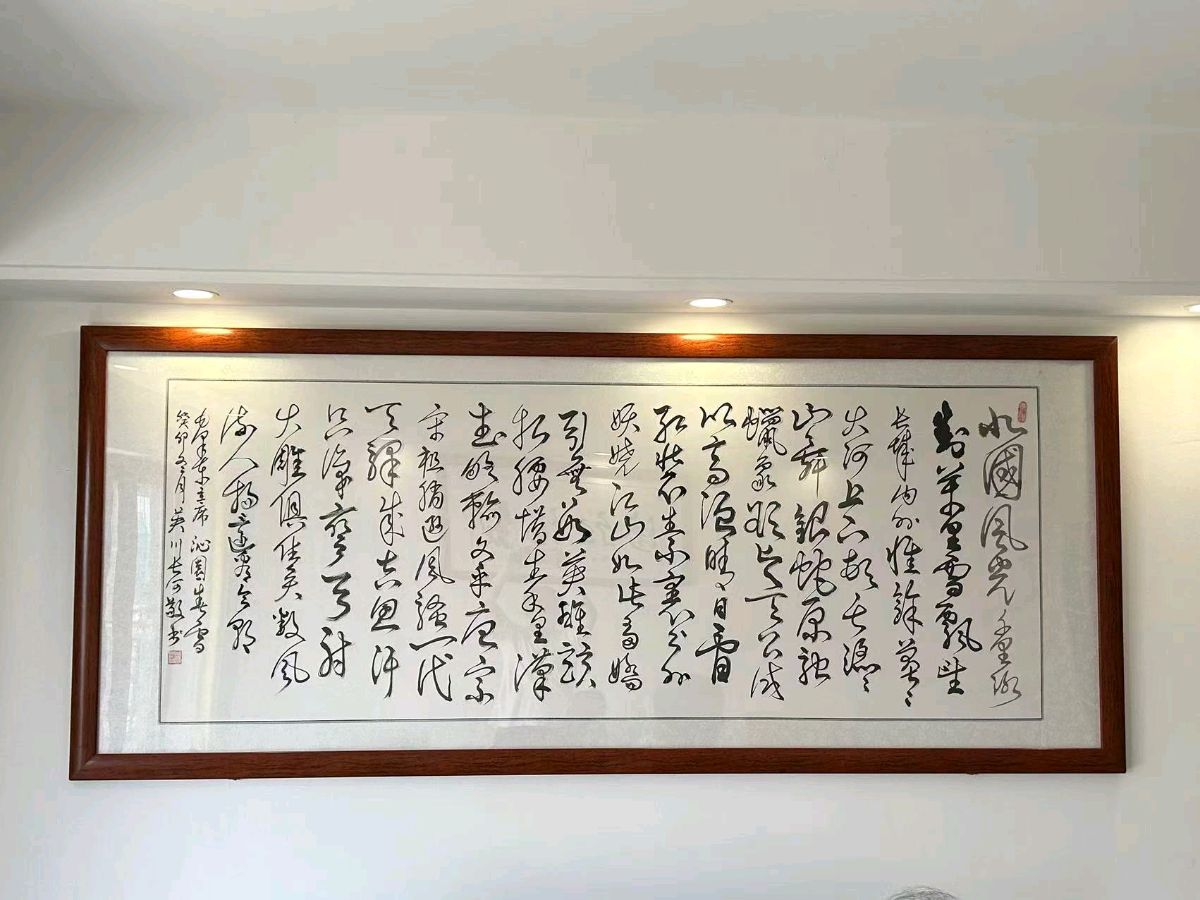 北國風光千里冰
封萬里雪飄望
長城内外惟餘莽〻
大河上下頓失滔〻
山舞銀蛇原馳
蠟象欲與天公試
比高須晴日看
紅裝素裹分外
妖嬈江山如此多嬌
引無數英雄競
折腰惜秦皇漢
武略輸文采唐宗
宋祖稍遜風騷一代
天驕成吉思汗
只識彎弓射
大雕俱往矣數風
流人物還看今朝
毛澤東主席沁園春雪
癸卯冬月吴川長河敬书